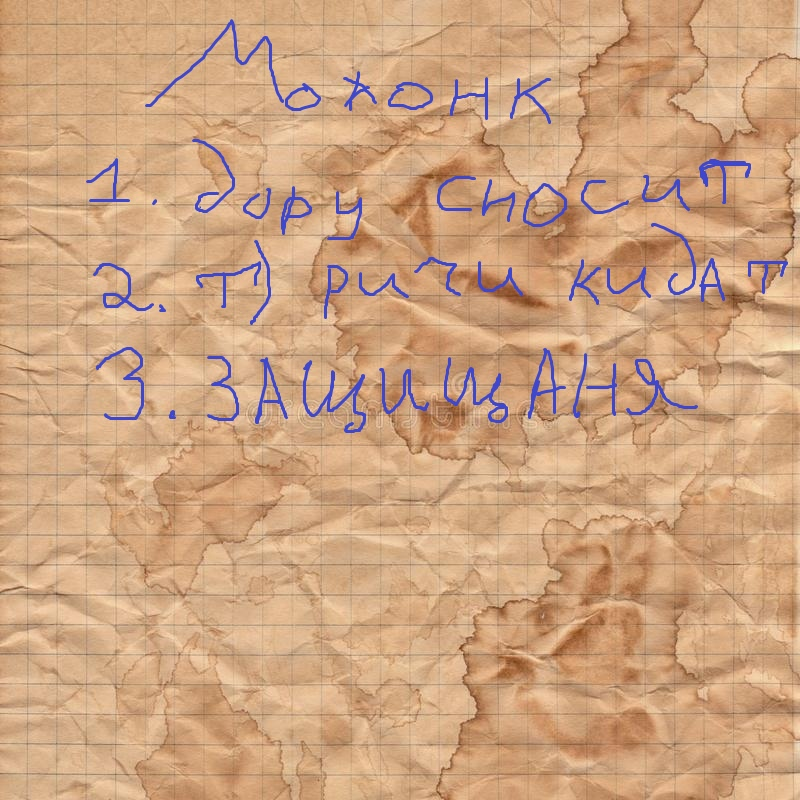 Мохонк
1. дору сносит
2. т) ричи кидат
3. ЗАЩИЩАНЯ